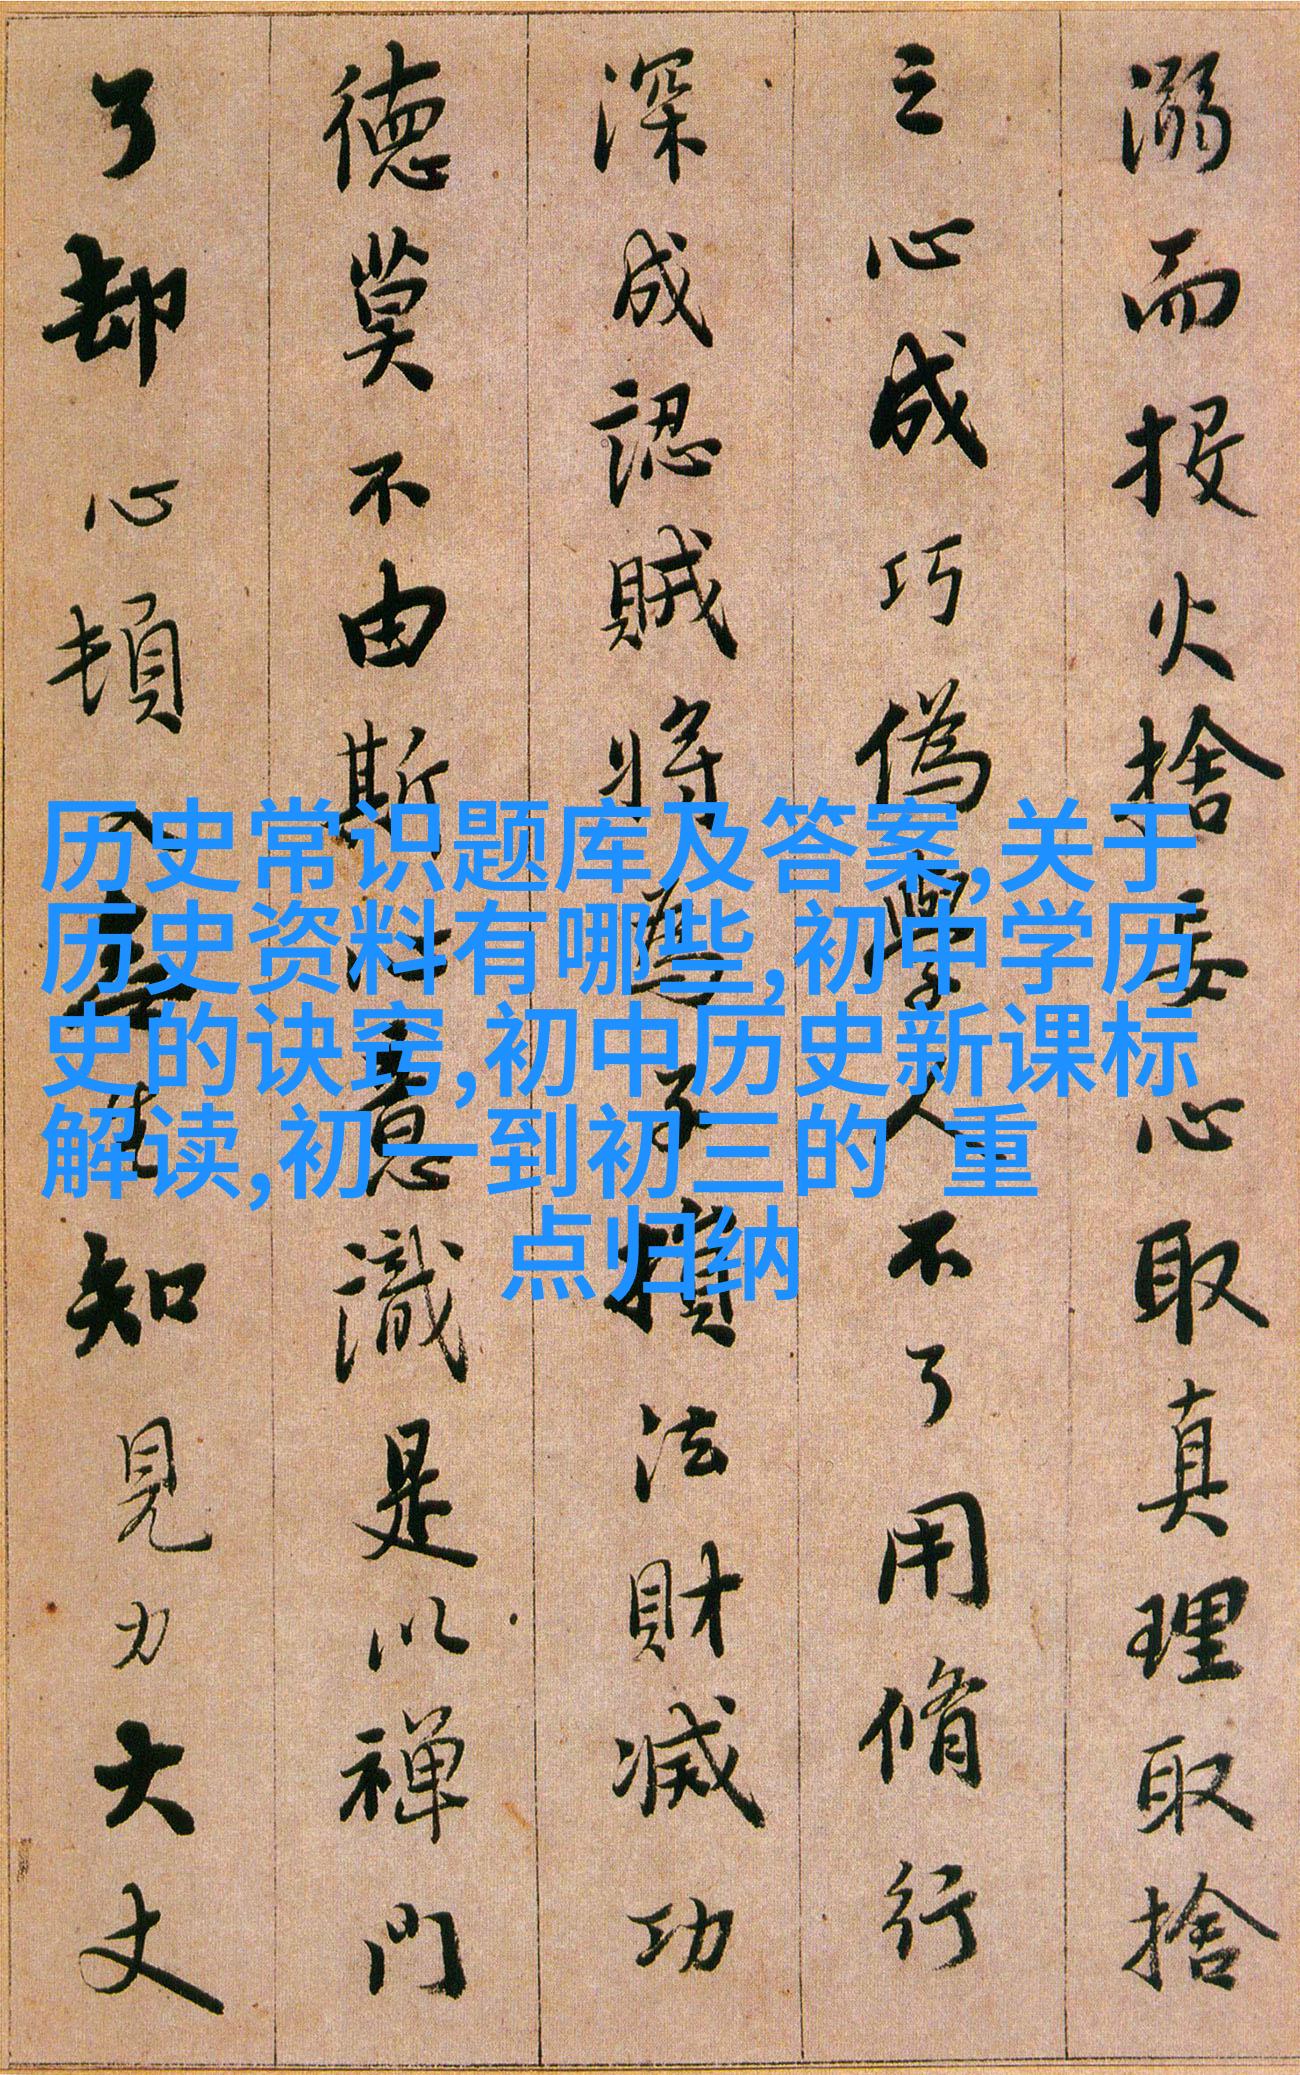 溺而投火捨妄心取真理取捨
之心成巧偽學人不了用脩行
深成認賊將為子損法財滅功
德莫不由斯心意識是以禪門
了却心頓入無生知見力大丈
历史常识题库及答案,关于
历史资料有哪些,初中学历
史的诀窍,初中历史新课标
解读,初一到初三的 重
点归纳